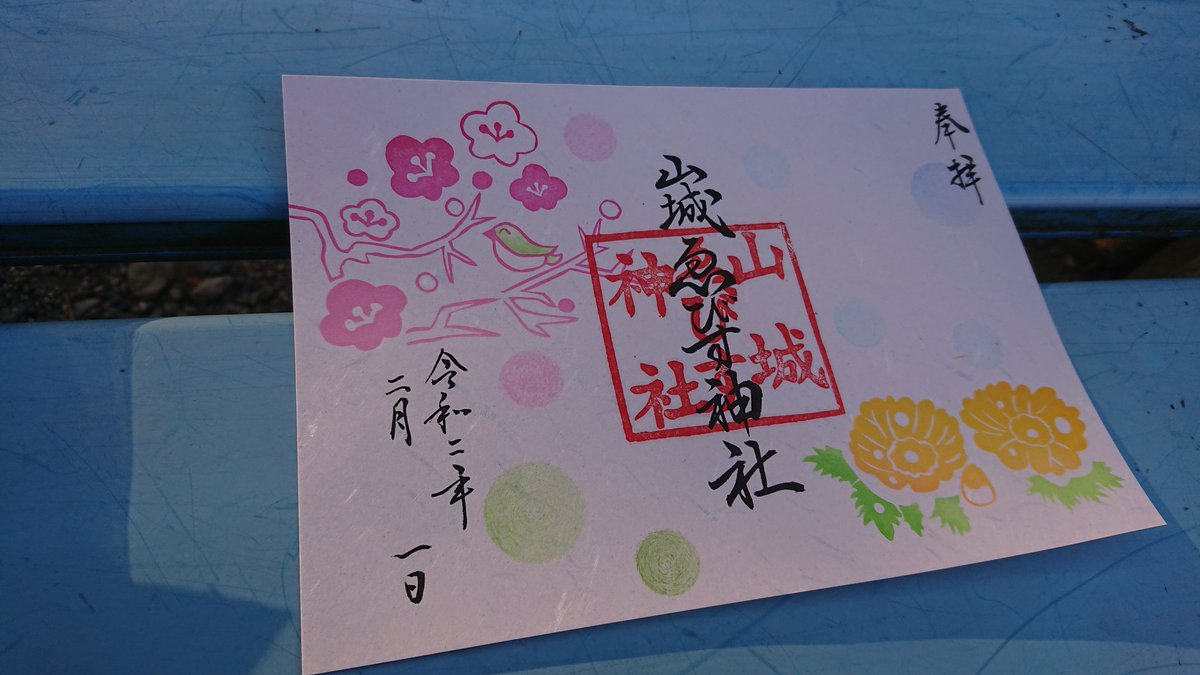 奉拝
山城ゑびす神社
山城
ゑびす
神社
令和二年
二月一日